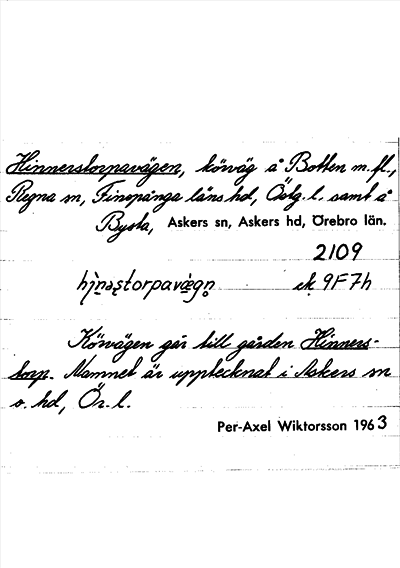 Hinnerstorpavägen, körväg å Botten m.fl.,
Regna sn, Finspånga läns hd, Östg. l. samt å
Bysta, Askers sn, Askers hd, Örebro län.
2109
ek 9F7h
Körvägen går till gården Hinners-
torp. Namnet är upptecknat i Askers sn
o. hd, Ör. l.
Per-Axel Wiktorsson 1963